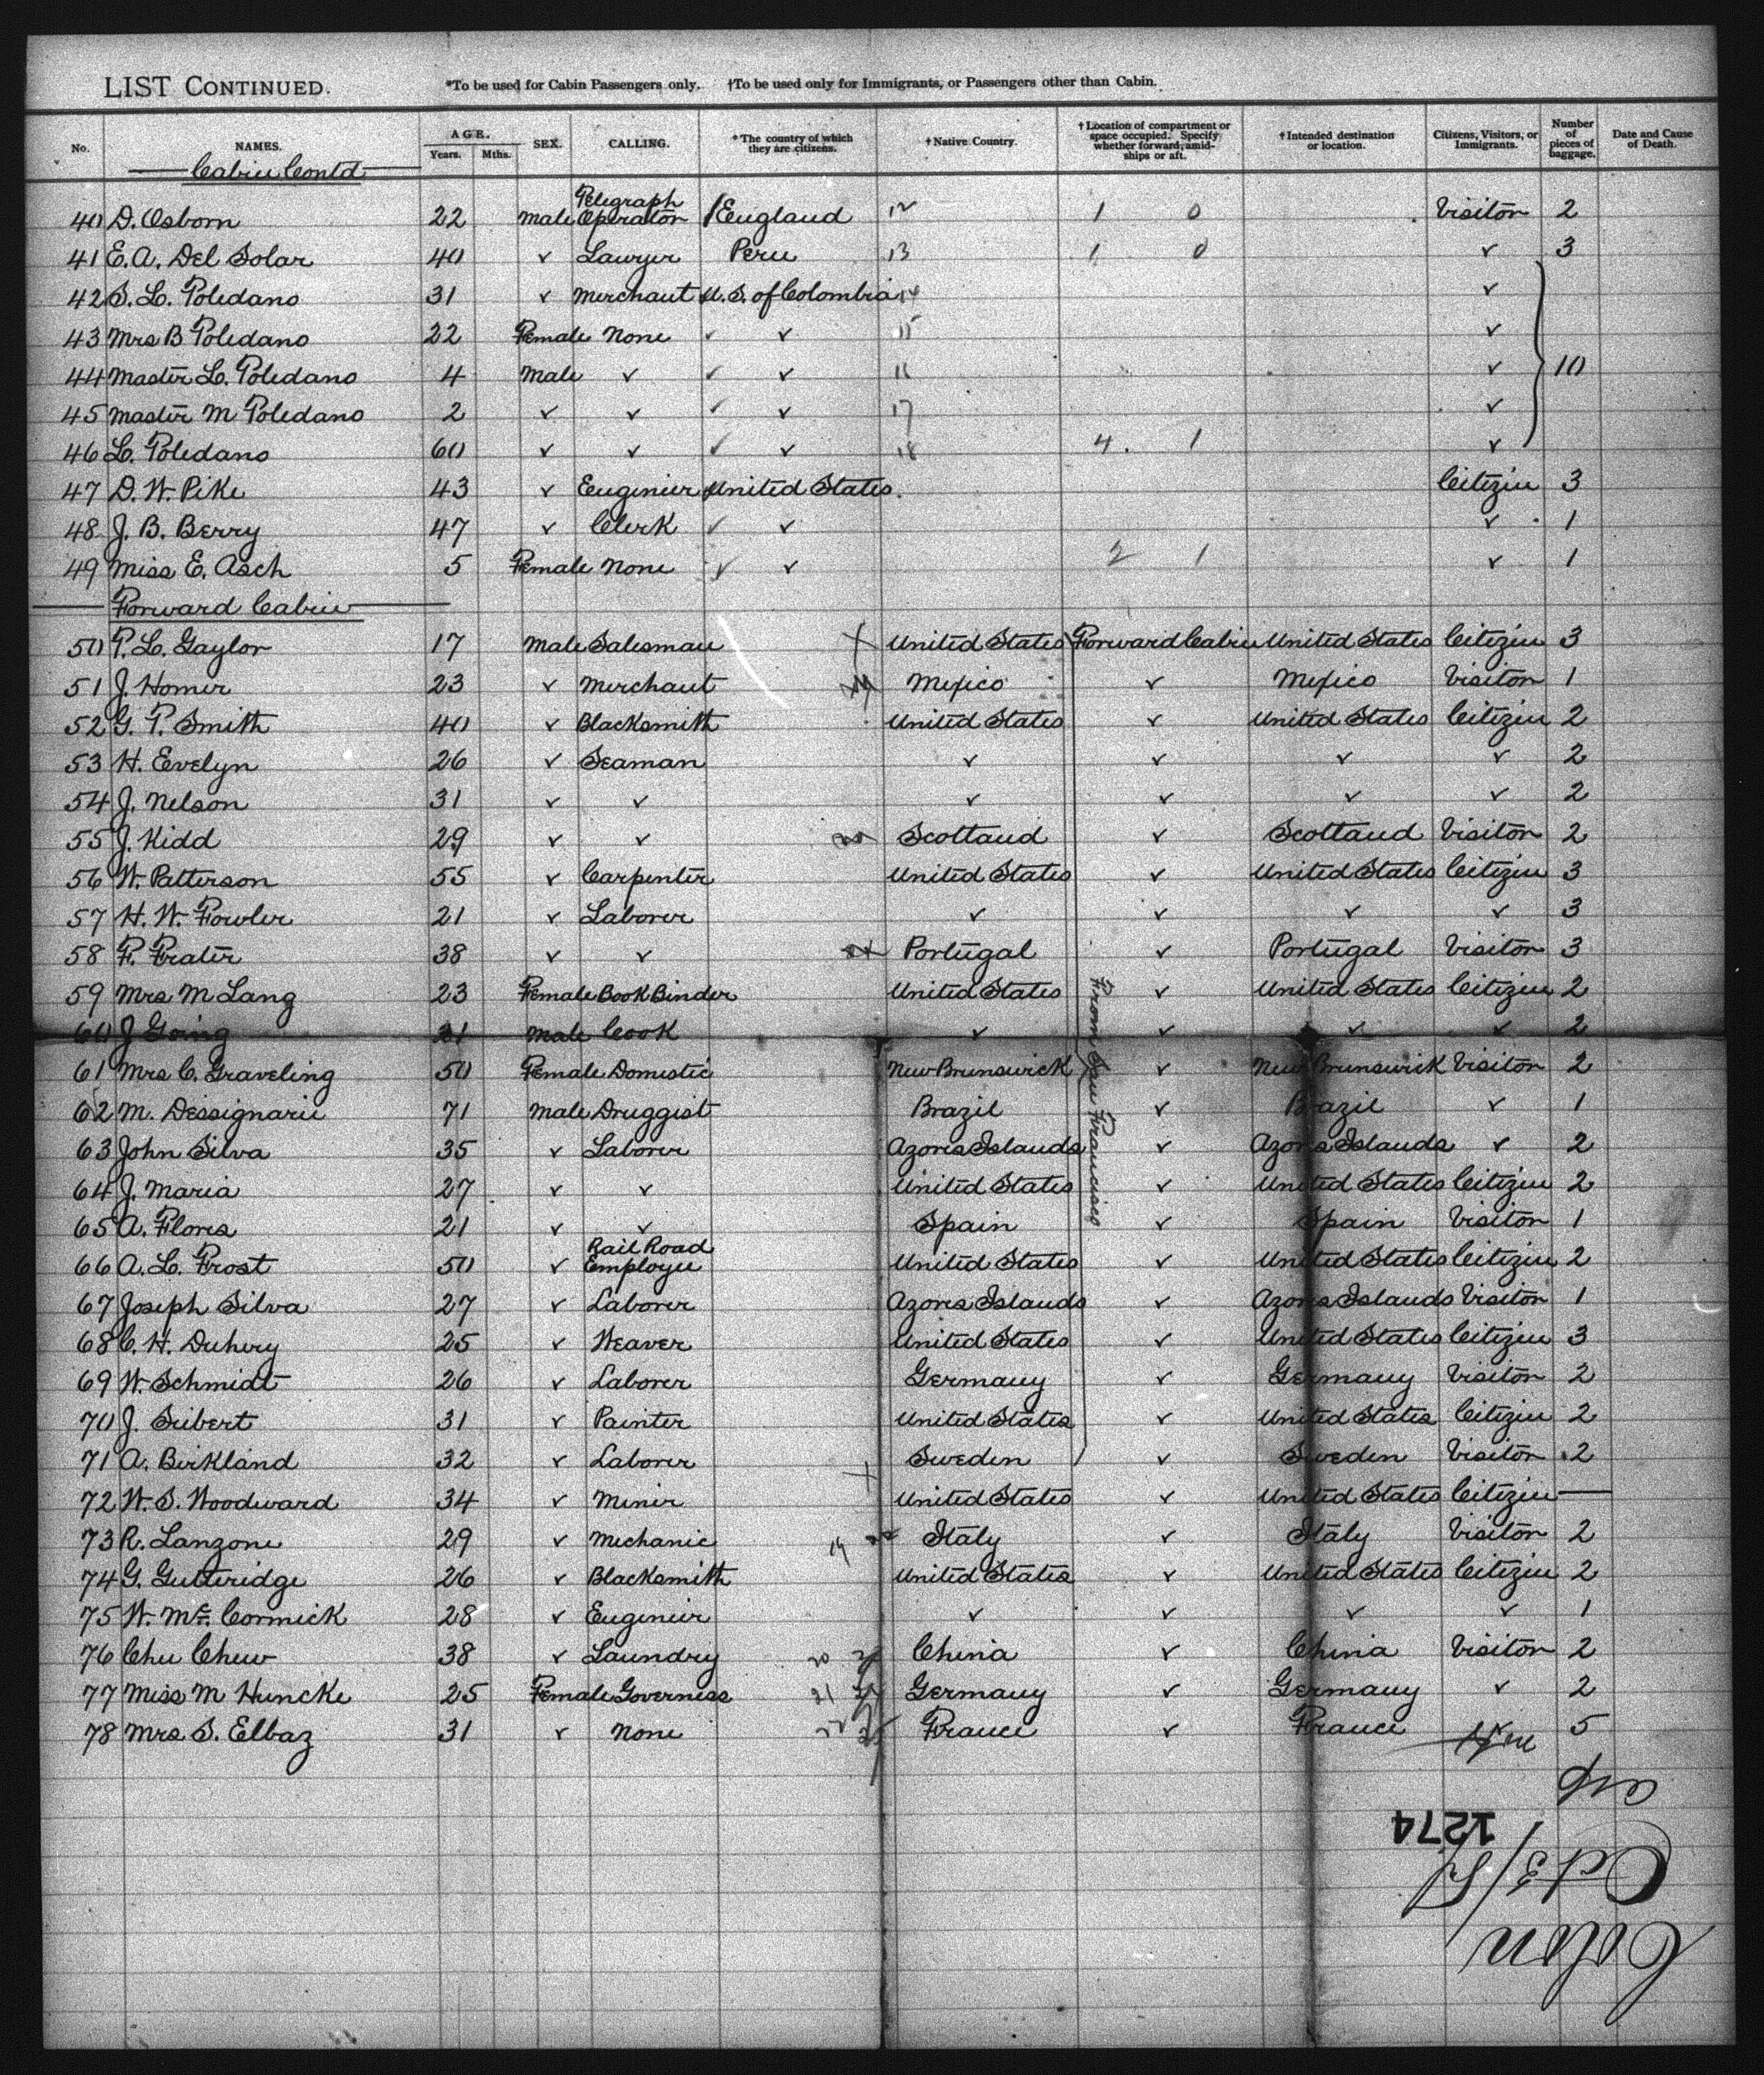 LIST CONTINUED. *To be used for Cabin Passengers only. †To be used only for Immigrants, or Passengers other than Cabin.
No. NAMES. AGE. Years. Mths. SEX. CALLING. *The country of which they are citizens. †Native Country. †Location of compartment or space occupied. Specify whether forward, amidships or aft. †Intended destination or location. Citizens, Visitors, or Immigrants. Number of pieces of baggage. Date and Cause of Death.
Cabin Contd
40 D. Osborn 22 Male Telegraph Operator England 12 1 0 Visitor 2
41 E. A. Del Solar 40 ✓ Lawyer Peru 13 1 0 ✓ 3
42 S. L. Toledano 31 ✓ Merchant U. S. of Colombia 14 ✓
43 Mrs B Toledano 22 Female None ✓ ✓ 15 ✓
44 Master L. Toledano 4 Male ✓ ✓ ✓ 16 ✓ 10
45 Master M Toledano 2 ✓ ✓ ✓ ✓ 17 ✓
46 L. Toledano 60 ✓ ✓ ✓ ✓ 18 4. 1 ✓
47 D. W. Pike 43 ✓ Engineer United States. Citizen 3
48 J. B. Berry 47 ✓ Clerk ✓ ✓ ✓ 1
49 Miss E. Asch 5 Female None ✓ ✓ 2 1 ✓ 1
Forward Cabin
50 T. L. Gaylor 17 Male Salesman United States Forward Cabin United States Citizen 3
51 J. Homer 23 ✓ Merchant Mexico ✓ Mexico Visitor 1
52 G. T. Smith 40 ✓ Blacksmith United States ✓ United States Citizen 2
53 H. Evelyn 26 ✓ Seaman ✓ ✓ ✓ ✓ 2
54 J. Nelson 31 ✓ ✓ ✓ ✓ ✓ ✓ 2
55 J. Kidd 29 ✓ ✓ Scotland ✓ Scotland Visitor 2
56 W. Patterson 55 ✓ Carpenter United States ✓ United States Citizen 3
57 H. W. Fowler 21 ✓ Laborer ✓ ✓ ✓ ✓ 3
58 F. Frater 38 ✓ ✓ Portugal ✓ Portugal Visitor 3
59 Mrs M Lang 23 Female Book Binder United States ✓ United States Citizen 2
60 J Going 31 Male Cook ✓ ✓ ✓ ✓ 2
61 Mrs C. Graveling 50 Female Domestic New Brunswick ✓ New Brunswick Visitor 2
62 M. Dessignarie 71 Male Druggist Brazil ✓ Brazil ✓ 1
63 John Silva 35 ✓ Laborer Azores Islands ✓ Azores Islands ✓ 2
64 J. Maria 27 ✓ ✓ United States ✓ United States Citizen 2
65 A. Flores 21 ✓ ✓ Spain ✓ Spain Visitor 1
66 A. L. Frost 50 ✓ Rail Road Employee United States ✓ United States Citizen 2
67 Joseph Silva 27 ✓ Laborer Azores Islands ✓ Azores Islands Visitor 1
68 C. H. Duhery 25 ✓ Weaver United States ✓ United States Citizen 3
69 W. Schmidt 26 ✓ Laborer Germany ✓ Germany Visitor 2
70 J. Seibert 31 ✓ Painter United States ✓ United States Citizen 2
71 A. Birkland 32 ✓ Laborer Sweden ✓ Sweden Visitor 2
72 W. S. Woodward 34 ✓ Miner United States ✓ United States Citizen —
73 R. Lanzone 29 ✓ Mechanic 19 Italy ✓ Italy Visitor 2
74 G. Gutteridge 26 ✓ Blacksmith United States ✓ United States Citizen 2
75 W. McCormick 28 ✓ Engineer ✓ ✓ ✓ ✓ 1
76 Chu Chew 38 ✓ Laundry 20 China ✓ China Visitor 2
77 Miss M Huncke 25 Female Governess 21 Germany ✓ Germany ✓ 2
78 Mrs S. Elbaz 31 ✓ None 22 France ✓ France 5
From San Francisco
1274
Colon